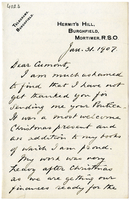 HERMIT'S HILL,
BURGHFIELD,
MORTIMER, R.S.O.
Jan. 31. 1907.
Dear Cumont,
I am much ashamed
to find that I have not
yet thanked you for
sending me your
It was a most welcome
Christmas present and
an addition to my
of which I am proud.
My work was very
heavy after Christmas
as we are getting our
ready for the